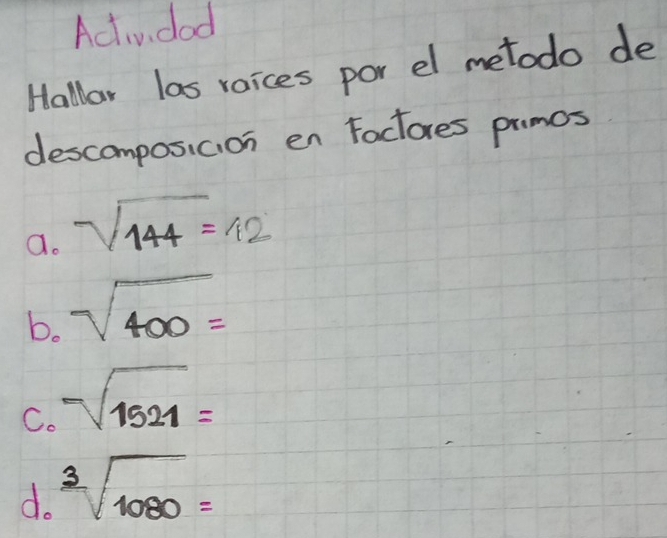 Actividad
Hallar las raíces por el metodo de
descomposición en factores primos.
a. √144 = 12
b. √400 =
c. √1521 =
d. ³√1080 =